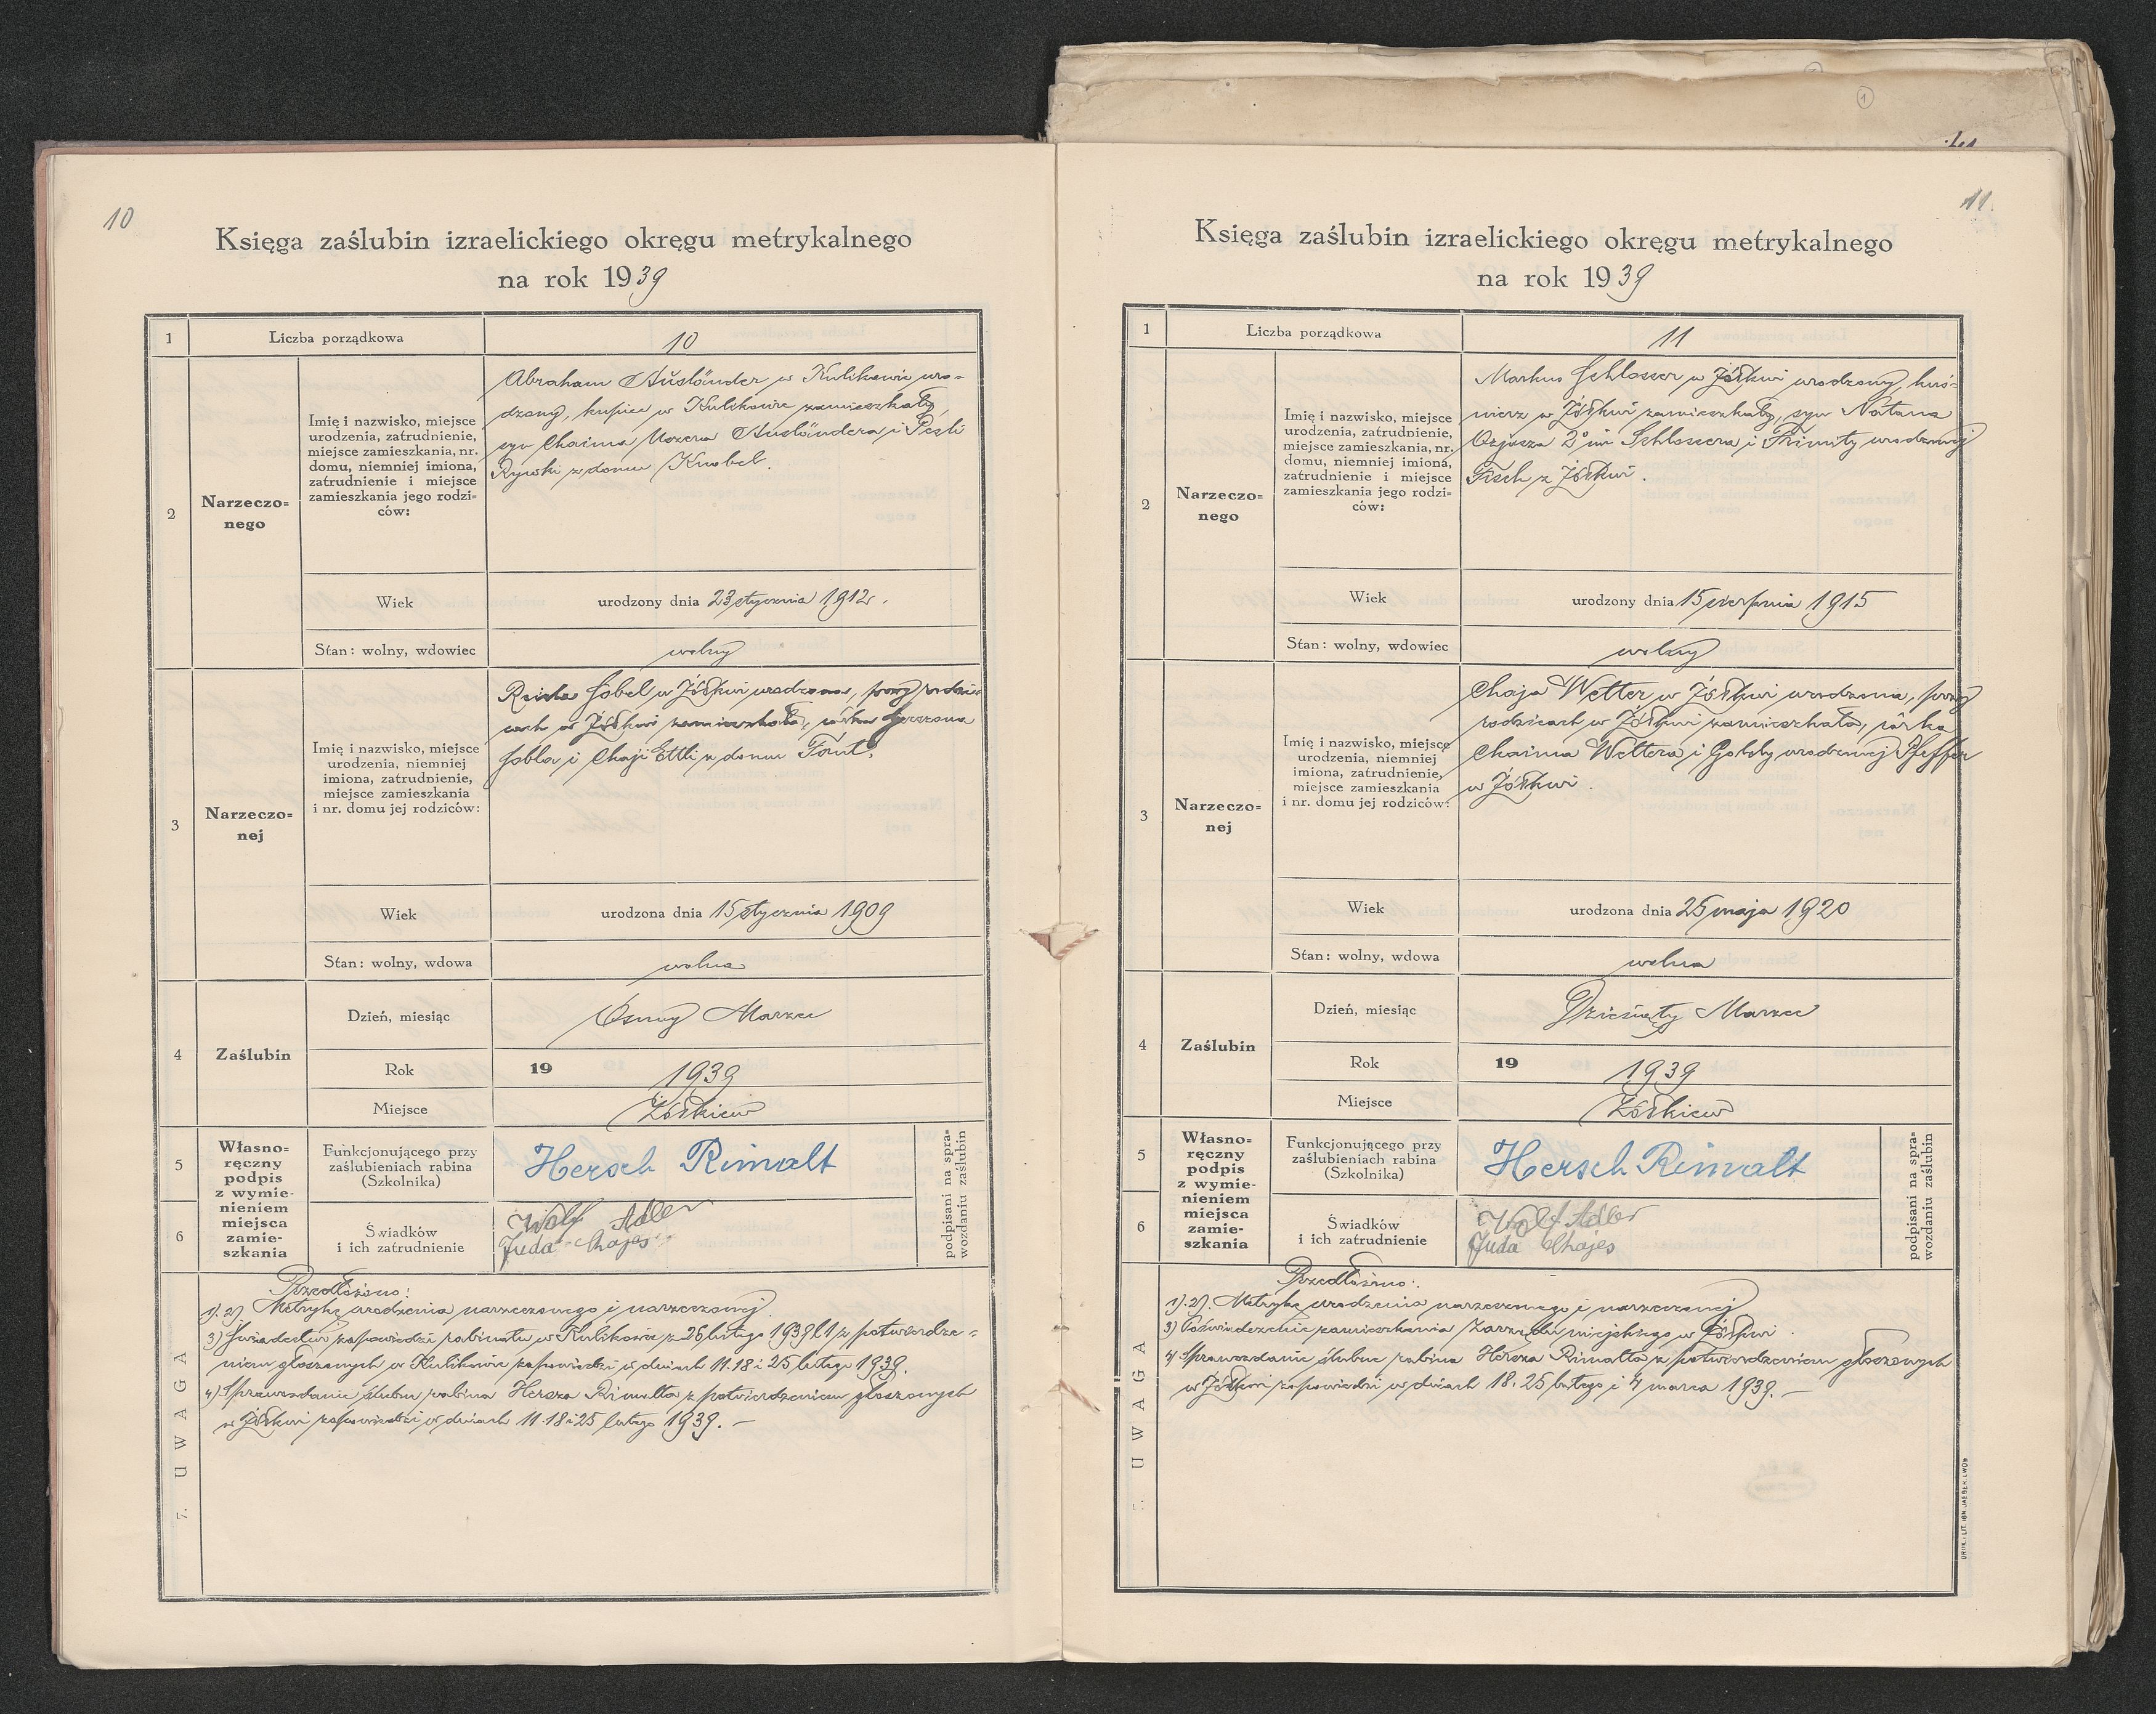 10
Księga zaślubin izraelickiego okręgu metrykalnego
na rok 1939
1
Liczba porządkowa
10
2
Narzeczo=
nego
Imię i nazwisko, miejsce
urodzenia, zatrudnienie,
miejsce zamieszkania, nr.
domu, niemniej imiona,
zatrudnienie i miejsce
zamieszkania jego rodzi=
ców:
Abraham Ausländer w Kulikowie uro=
dzony, kupiec w Kulikowie zamieszkały,
syn Chaima Mozera Ausländera i Pesli
Rywki z domu Knobel.
Wiek
urodzony dnia 23 stycznia 1912r.
Stan: wolny, wdowiec
wolny
3
Narzeczo=
nej
Imię i nazwisko, miejsce
urodzenia, niemniej
imiona, zatrudnienie,
miejsce zamieszkania
i nr. domu jej rodziców:
Sobel w Żółkwi urodzona, przy rodzi=
cach w Żółkwi zamieszkała, córka Gerszona
Sobla i Chaji Ettli z domu
Wiek
urodzona dnia 15 stycznia 1909
Stan: wolny, wdowa
wolna
4
Zaślubin
Dzień, miesiąc
Ósmy Marzec
Rok
19 1939
Miejsce
Żółkiew
5
6
Własno=
ręczny
podpis
z wymie-
nieniem
miejsca
zamie-
szkania
Funkcjonującego przy
zaślubieniach rabina
(Szkolnika)
Hersch Rimalt
Świadków
i ich zatrudnienie
Wolf Adler
Juda Chajes
podpisani na spra=
wozdaniu zaślubin
7. UWAGA
Przedłożono:
1). 2) Metrykę urodzenia narzeczonego i narzeczonej.
3) Świadectwo zapowiedzi rabinatu w Kulikowie z 26 lutego 1939 l 1 z potwierdze=
niem głoszonych w Kulikowie zapowiedzi w dniach 11. 18 i 25 lutego 1939.
4) Sprawozdanie ślubne rabina Hersza Rimalta z potwierdzeniem głoszonych
w Żółkwi zapowiedzi w dniach 11. 18 i 25 lutego 1939. —
11.
Księga zaślubin izraelickiego okręgu metrykalnego
na rok 1939
1
Liczba porządkowa
11
2
Narzeczo=
nego
Imię i nazwisko, miejsce
urodzenia, zatrudnienie,
miejsce zamieszkania, nr.
domu, niemniej imiona,
zatrudnienie i miejsce
zamieszkania jego rodzi=
ców:
Markus Schlosser w Żółkwi urodzony, kuś=
nierz w Żółkwi zamieszkały, syn Natana
Ozjasza 2 im Schlossera i Frimity urodzonej
Fisch z Żółkwi.
Wiek
urodzony dnia 15 sierpnia 1915
Stan: wolny, wdowiec
wolny
3
Narzeczo=
nej
Imię i nazwisko, miejsce
urodzenia, niemniej
imiona, zatrudnienie,
miejsce zamieszkania
i nr. domu jej rodziców:
Chaja Wetter w Żółkwi urodzona, przy
rodzicach w Żółkwi zamieszkała, córka
Chaima Wettera i Goldy urodzonej Pfeffer
w Żółkwi.
Wiek
urodzona dnia 25 maja 1920
Stan: wolny, wdowa
wolna
4
Zaślubin
Dzień, miesiąc
Dziesiąty Marzec
Rok
19 1939
Miejsce
Żółkiew
5
6
Własno=
ręczny
podpis
z wymie-
nieniem
miejsca
zamie-
szkania
Funkcjonującego przy
zaślubieniach rabina
(Szkolnika)
Hersch Rimalt
Świadków
i ich zatrudnienie
Wolf Adler
Juda Chajes
podpisani na spra=
wozdaniu zaślubin
7. UWAGA
Przedłożono:
1). 2). Metrykę urodzenia narzeczonego i narzeczonej
3) Poświadczenie zamieszkania Zarządu miejskiego w Żółkwi.
4) Sprawozdanie ślubne rabina Hersza Rimalta z potwierdzeniem głoszonych
w Żółkwi zapowiedzi w dniach 18. 25 lutego i 4 marca 1939. —
DRUK. I LIT. IGN. JAEGER, LWÓW